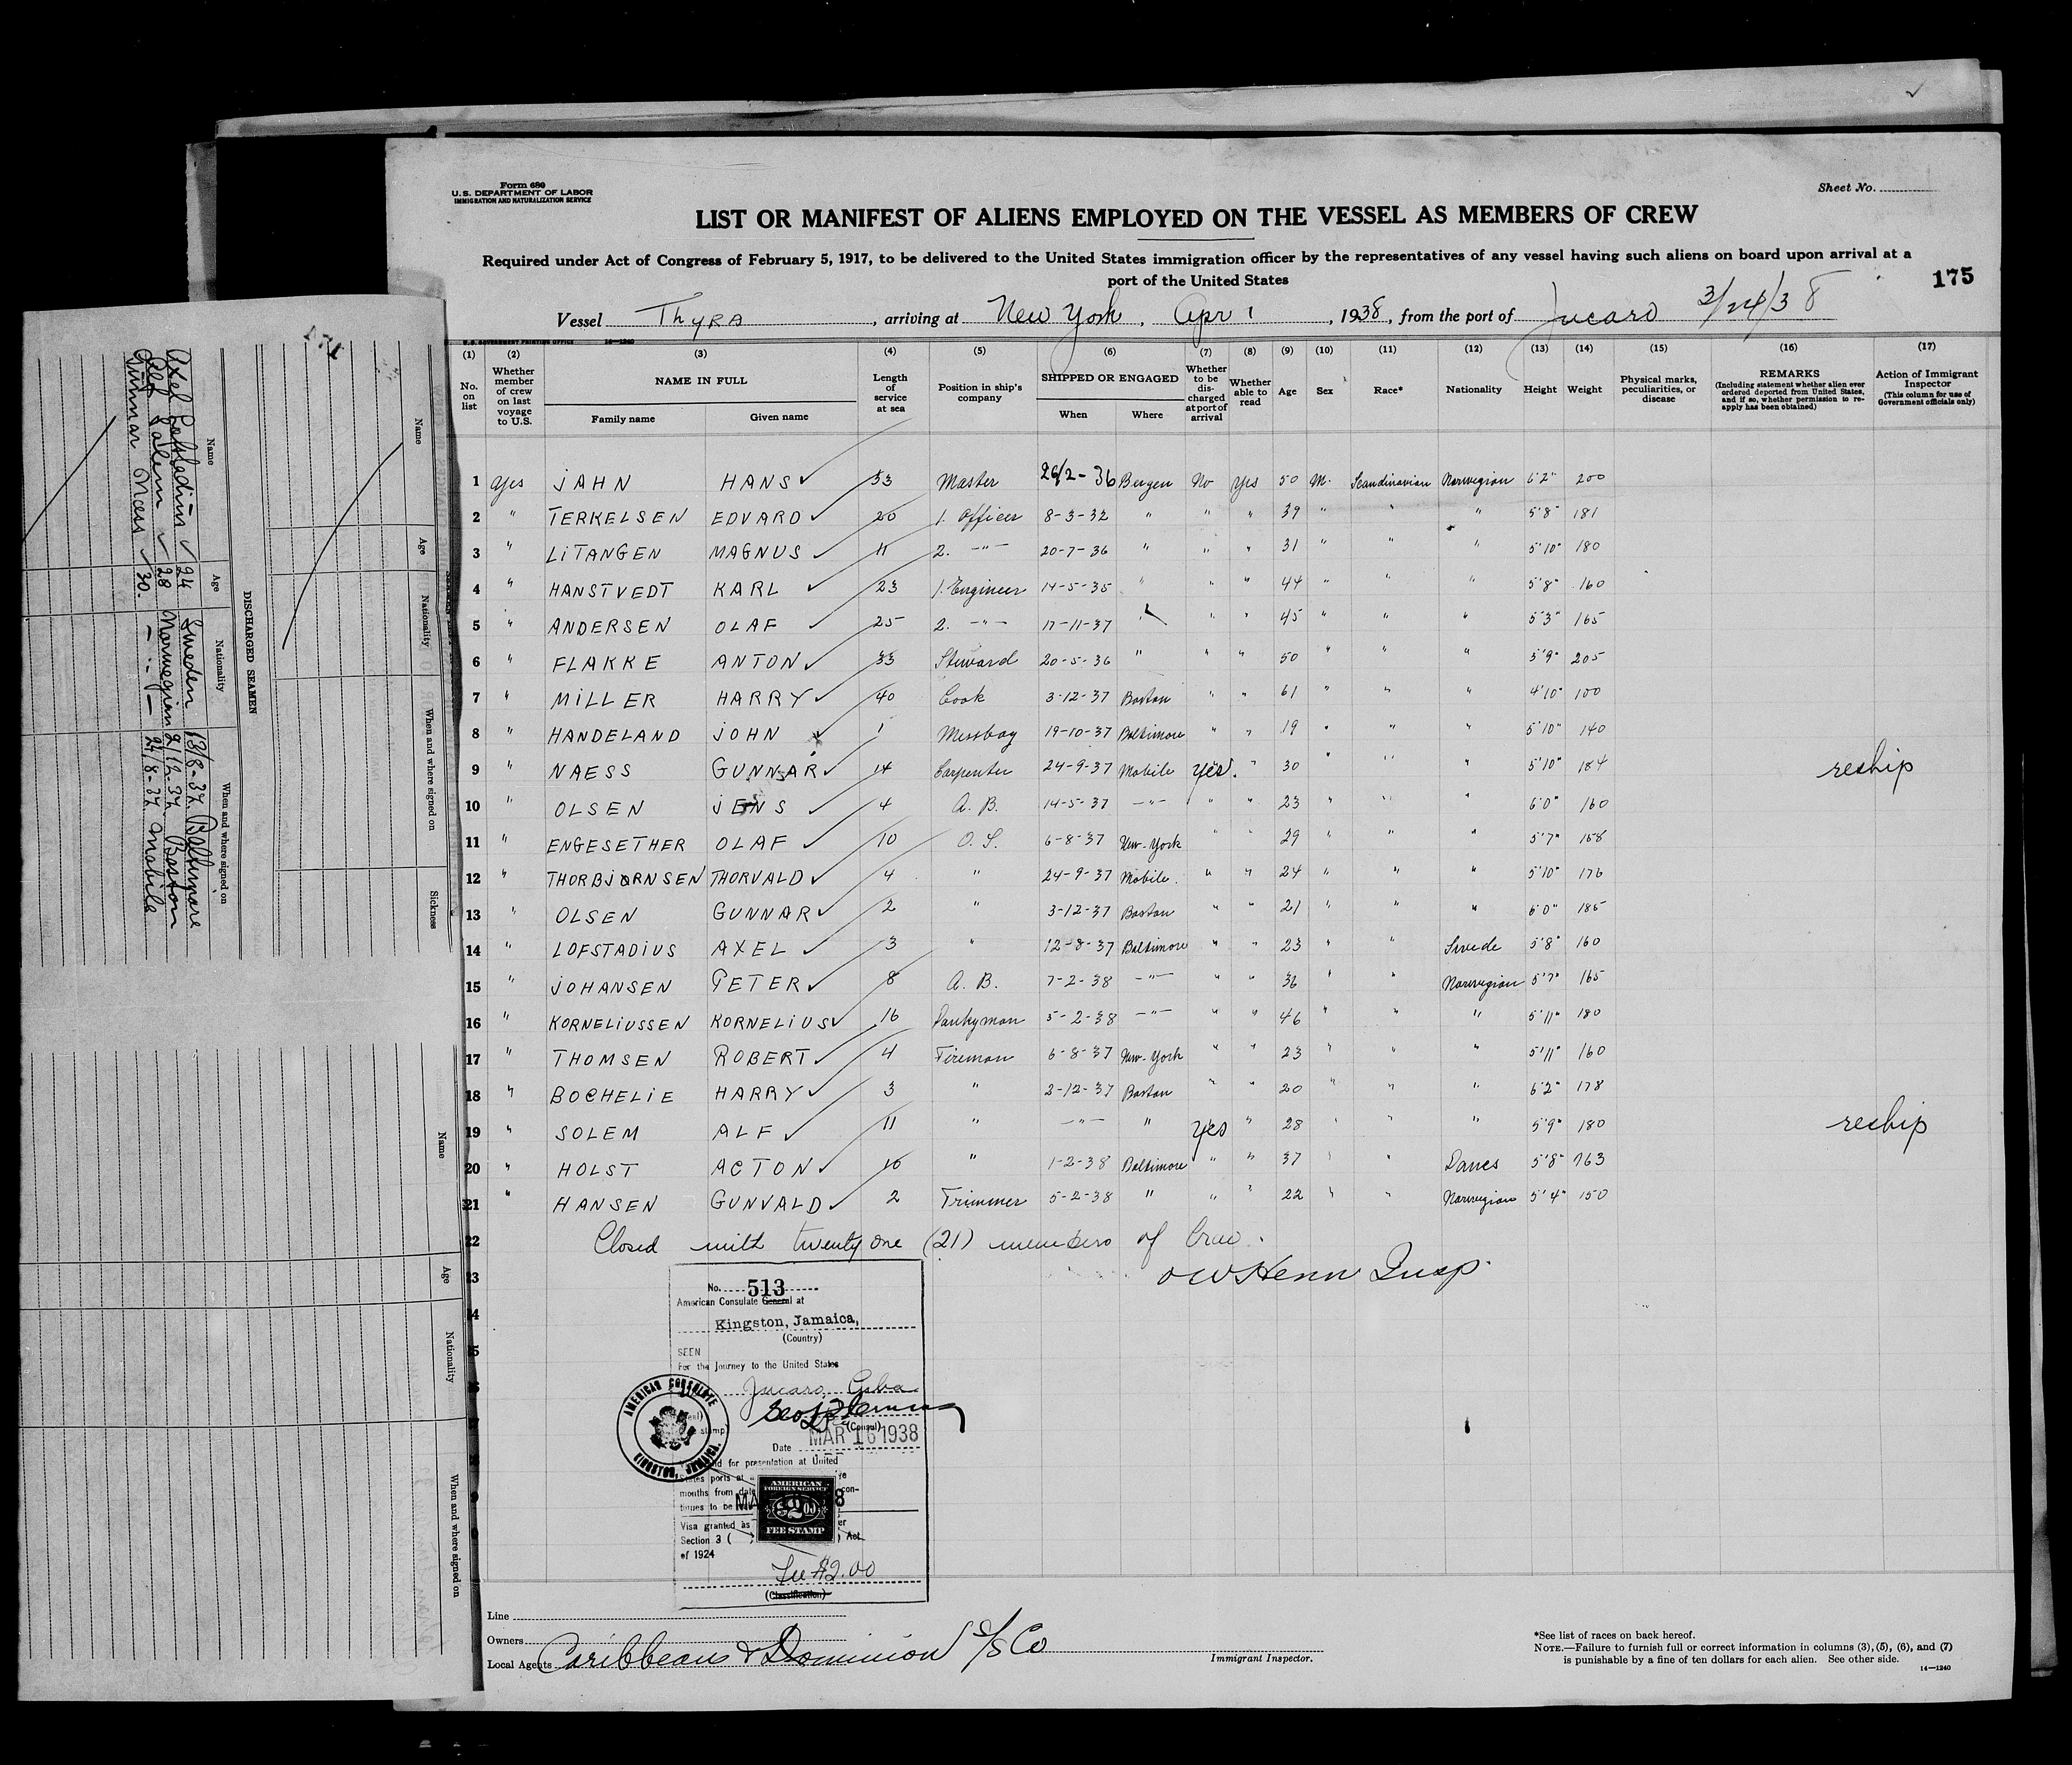 Form 680
U. S. DEPARTMENT OF LABOR
IMMIGRATION AND NATURALIZATION SERVICE
Sheet No.
LIST OR MANIFEST OF ALIENS EMPLOYED ON THE VESSEL AS MEMBERS OF CREW
Required under Act of Congress of February 5, 1917, to be delivered to the United States immigration officer by the representatives of any vessel having such aliens on board upon arrival at a
port of the United States
175
Vessel Thyra, arriving at New York, Apr 1, 1938, from the port of Jucaro 3/24/38
U.S. GOVERNMENT PRINTING OFFICE 14—1240
(1) (2) (3) (4) (5) (6) (7) (8) (9) (10) (11) (12) (13) (14) (15) (16) (17)
No. on list
Whether member of crew on last voyage to U.S.
NAME IN FULL
Family name Given name
Length of service at sea
Position in ship's company
SHIPPED OR ENGAGED
When Where
Whether to be discharged at port of arrival
Whether able to read
Age
Sex
Race*
Nationality
Height
Weight
Physical marks, peculiarities, or disease
REMARKS
(Including statement whether alien ever ordered deported from United States, and if so, whether permission to reapply has been obtained)
Action of Immigrant Inspector
(This column for use of Government officials only)
1 Yes JAHN HANS ✓ 33 Master 26/2-36 Bergen No Yes 50 M. Scandinavian Norwegian 6'2" 200
2 " TERKELSEN EDVARD ✓ 20 1. Officer 8-3-32 " " " 39 " " " 5'8" 181
3 " LITANGEN MAGNUS ✓ 11 2. -"- 20-7-36 " " " 31 " " " 5'10" 180
4 " HANSTVEDT KARL ✓ 23 1. Engineer 14-5-35 " " " 44 " " " 5'8" 160
5 " ANDERSEN OLAF ✓ 25 2. -"- 17-11-37 " " " 45 " " " 5'3" 165
6 " FLAKKE ANTON ✓ 33 Steward 20-5-36 " " " 50 " " " 5'9" 205
7 " MILLER HARRY ✓ 40 Cook 3-12-37 Boston " " 61 " " " 4'10" 100
8 " HANDELAND JOHN ✓ 1 Messboy 19-10-37 Baltimore " " 19 " " " 5'10" 140
9 " NAESS GUNNAR ✓ 14 Carpenter 24-9-37 Mobile Yes. " 30 " " " 5'10" 184 reship
10 " OLSEN JENS ✓ 4 A. B. 14-5-37 -"- " " 23 " " " 6'0" 160
11 " ENGESETHER OLAF ✓ 10 O. S. 6-8-37 New-York " " 29 " " " 5'7" 158
12 " THORBJØRNSEN THORVALD ✓ 4 " 24-9-37 Mobile. " " 24 " " " 5'10" 176
13 " OLSEN GUNNAR ✓ 2 " 3-12-37 Boston " " 21 " " " 6'0" 185
14 " LOFSTADIUS AXEL ✓ 3 " 12-8-37 Baltimore " " 23 " " Swede 5'8" 160
15 " JOHANSEN PETER ✓ 8 A. B. 7-2-38 -"- " " 36 " " Norwegian 5'7" 165
16 " KORNELIUSSEN KORNELIUS ✓ 16 Dankyman 5-2-38 -"- " " 46 " " " 5'11" 180
17 " THOMSEN ROBERT ✓ 4 Fireman 6-8-37 New-York " " 23 " " " 5'11" 160
18 " BOCHELIE HARRY ✓ 3 " 2-12-37 Boston " " 20 " " " 6'2" 178
19 " SOLEM ALF ✓ 11 " -"- " Yes " 28 " " " 5'9" 180 reship
20 " HOLST ACTON ✓ 10 " 1-2-38 Baltimore " " 37 " " Danes 5'8" 163
21 " HANSEN GUNVALD ✓ 2 Trimmer 5-2-38 " " " 22 " " Norwegian 5'4" 150
22 Closed with twenty one (21) members of Crew.
O W Henn Insp.
No. 513
American Consulate General at
Kingston, Jamaica,
(Country)
SEEN
For the journey to the United States
Jucaro, Cuba
(Consul)
Date MAR 16 1938
for presentation at United
States ports at
months from date
tinues to be
Visa granted as
Section 3 ( ) Act
of 1924
Fee $2.00
(Classification)
AMERICAN CONSULATE
KINGSTON, JAMAICA.
AMERICAN
FOREIGN SERVICE
$2.00
FEE STAMP
Line
Owners
Local Agents Caribbean & Dominion S/S Co
Immigrant Inspector.
*See list of races on back hereof.
NOTE.—Failure to furnish full or correct information in columns (3), (5), (6), and (7)
is punishable by a fine of ten dollars for each alien. See other side.
14—1240
DISCHARGED SEAMEN
Name Age Nationality When and where signed on
Axel Lofstadius ✓ 24 Sweden 13/8-37 Baltimore
Alf Solem ✓ 28 Norwegian 2/12-37 Boston
Gunnar Naess ✓ 30. -"- 24/8-37 Mobile
Name Age Nationality When and where signed on Sickness
Name Age Nationality When and where signed on